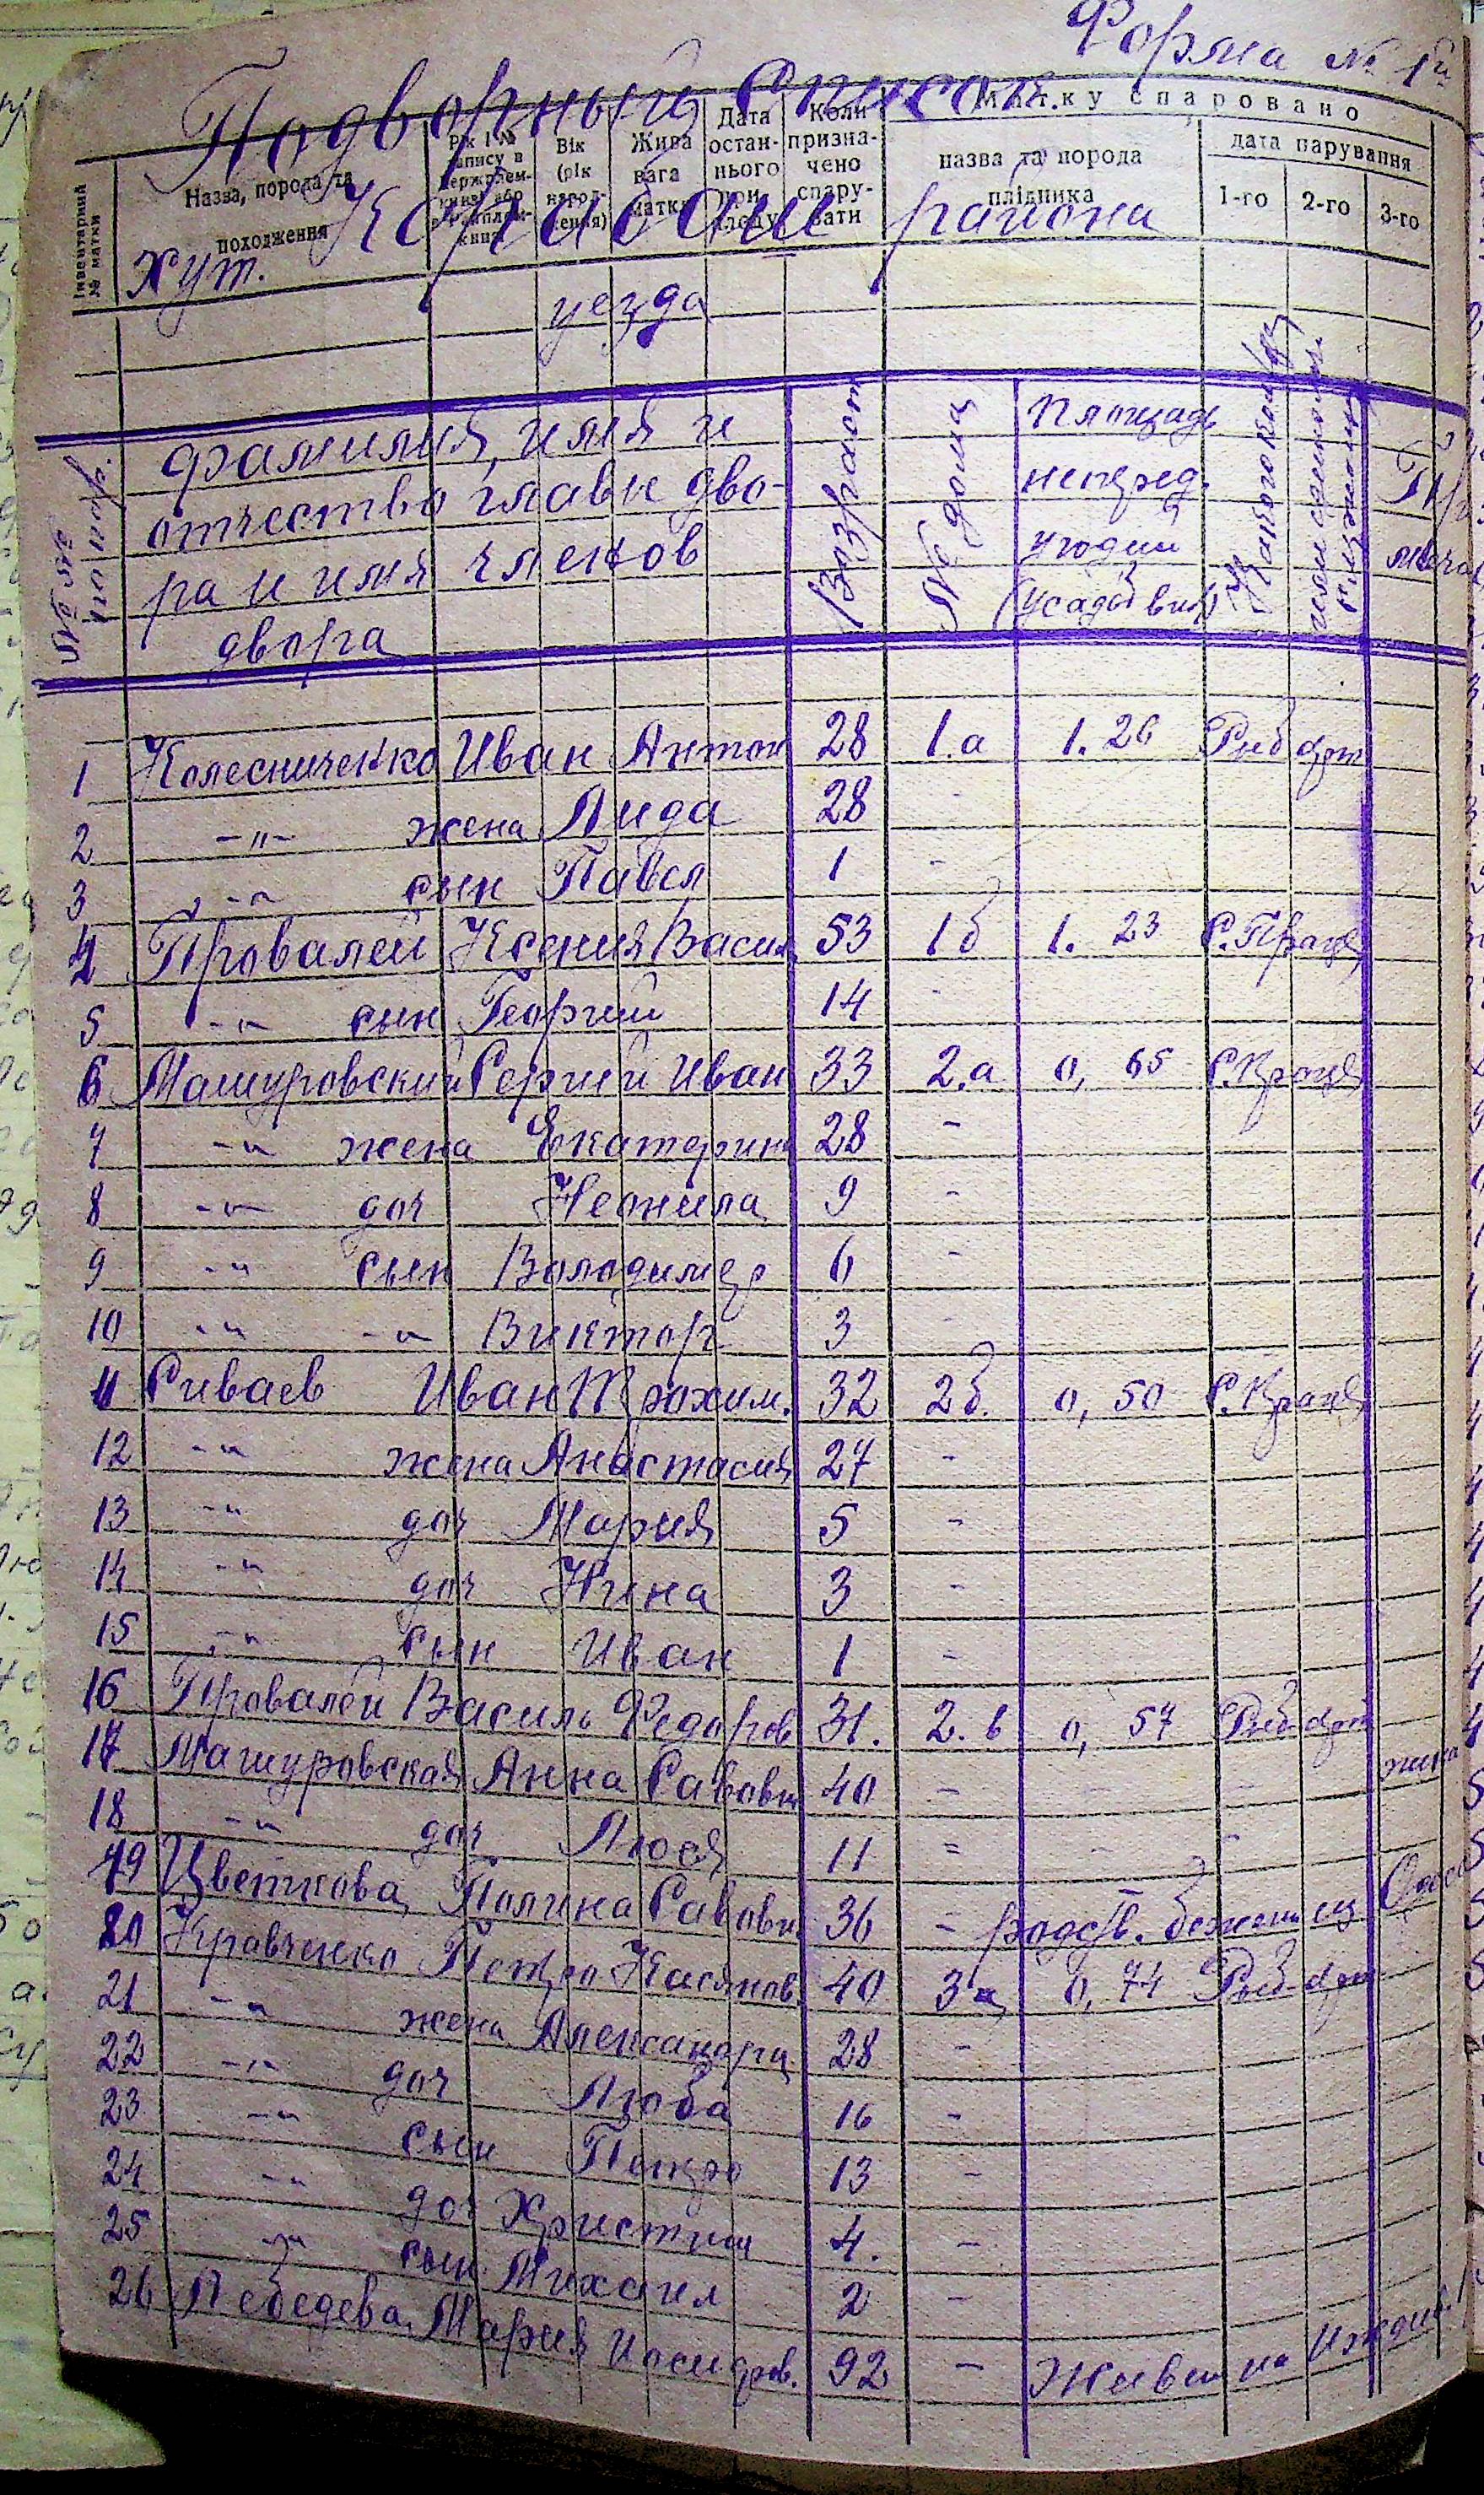 Форма № 1й
Подворный Список
Матку спаровано
Інвентарний № матки
Назва, порода та походження
Вік (рік народ-ження)
Жива вага матки
Дата остан-нього
Коли призна-чено спару-вати
назва та порода плідника
дата парування
1-го 2-го 3-го
хут. района
уезда
№№ по
фамилия, имя и
отчество главы дво-
ра и имя членов
двора
Возраст
№ дома
Площадь
непред.
угодий
(усадьбы)
1 Колесниченко Иван Антон 28 1.а 1.26 Рыб арт
2 -"- жена Лида 28 -
3 -"- сын Павел 1 -
4 Провалей Ксения Васил 53 1б 1.23 С.
5 -"- сын Георгий 14 -
6 Машуровский Сергий Иван 33 2.а 0,65 С.
7 -"- жена Екатерина 28 -
8 -"- доч Неонила 9 -
9 -"- сын Володимер 6 -
10 -"- -"- Виктор 3 -
11 Сиваев Иван Трохим. 32 2б. 0,50 С.
12 -"- жена Анастасия 27 -
13 -"- доч Мария 5 -
14 -"- доч Нина 3 -
15 -"- сын Иван 1 -
16 Провалей Василь Федоров 31. 2.в 0,57 Рыб арт
17 Машуровская Анна Саввовн 40 - - - жена
18 -"- доч Люся 11 = - -
19 Цветкова Полина Саввовн 36 - родств. беженец
20 Кравченко Петро Касянов. 40 3а 0,74 Рыб. арт
21 -"- жена Александра 28 -
22 -"- доч Люба 16 -
23 -"- сын Петро 13 -
24 -"- доч Христина 4. -
25 -"- сын Михаил 2 -
26 Лебедева Мария Исидров. 92 - Живет на